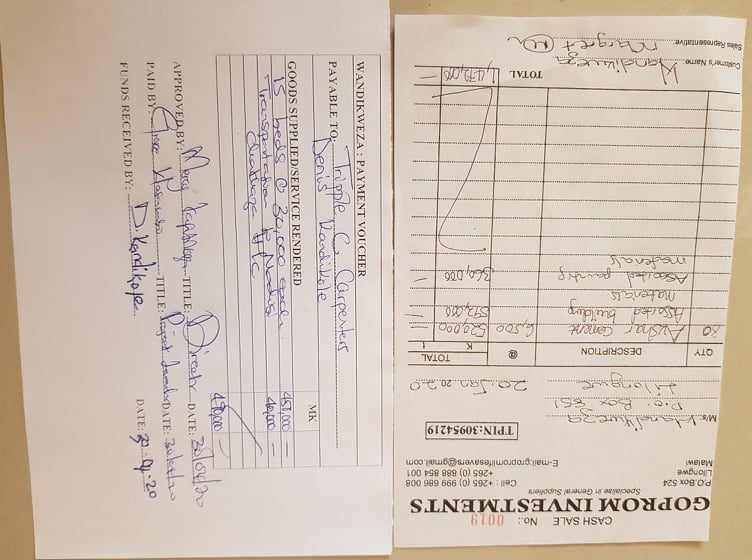 WANDIKWEZA : PAYMENT VOUCHER
PAYABLE TO: Tripple C. Carpenters
Denis Kandikole
GOODS SUPPLIED/SERVICE RENDERED MK
15 beds @ 30,000 each 450,000 —
Transportation to
40,000 —
490,000 —
APPROVED BY: Mercy TITLE: Director DATE: 30/04/20
PAID BY: TITLE: Project DATE: 30/04/20
FUNDS RECEIVED BY: D. Kandikole DATE: 30.04.20
CASH SALE No.: 0019
GOPROM INVESTMENTS
Specialise in General Suppliers
P.O.Box 524
Lilongwe
Malawi
Cell : +265 (0) 999 686 008
+265 (0) 888 854 001
E-mail:gopromlifesavers@gmail.com
TPIN:30954219
M/s Wandikweza
P.O. Box 651
Lilongwe 20 Jan 2020
QTY DESCRIPTION @ TOTAL
K t
80 cement 6,500 520,000 —
Assorted building 592,000 —
materials
Assorted painting 360,000 —
materials
TOTAL 1,472,000 —
Customer's Name: Wandikweza
Sales Representative: Margret